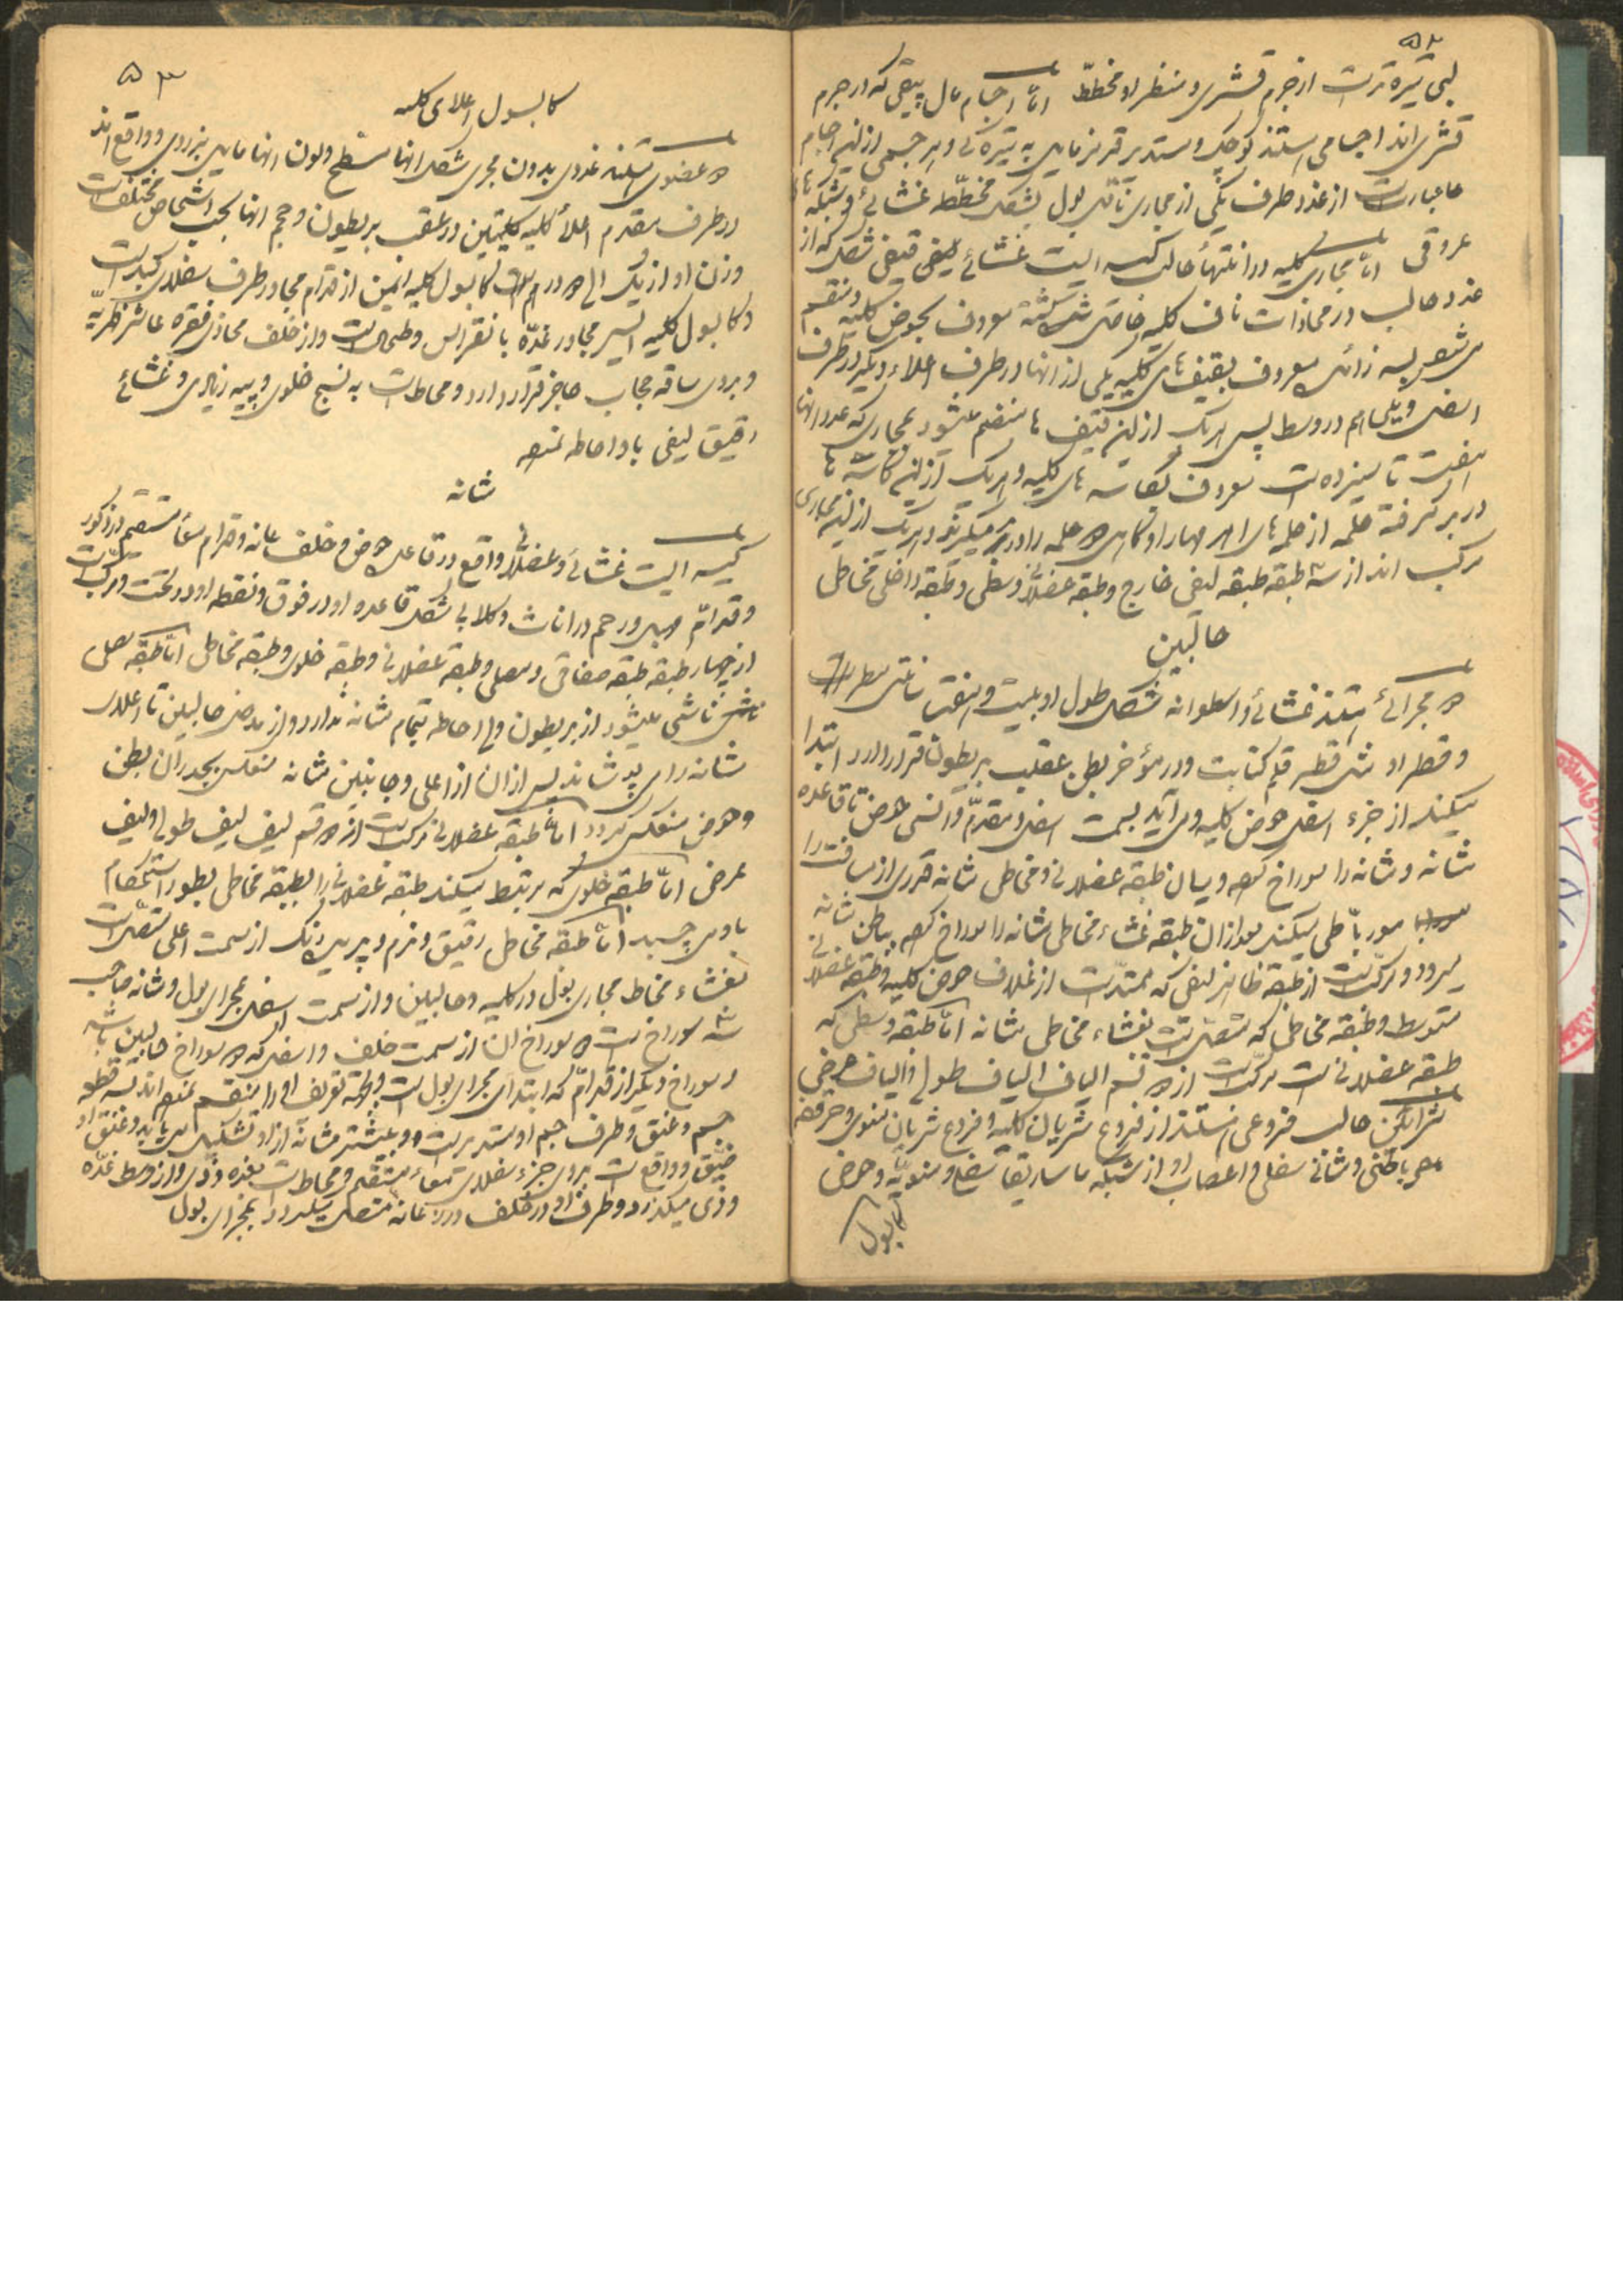 ۵۲
لبی تیره‌تر است از جرم قشری و منظر او مخطط اما اجسام مال پیقی که در جرم
قشری‌اند اجسامی هستند کوچک و مستدیر قرمز مایل به تیره‌گی و هر جسمی از این اجسام
عبارت از غدد ظرف یکی از مجاری ناقل بول بشکل مخطط غشائی و شبکه
عروقی اما مجاری کلیه در انتهاء حالب کیسه ایست غشائی قیفی شکل که از
غدد حالب در محاذات ناف کلیه حاصل شده معروف بحوض کلیه و منقسم
می‌شود بسه زائده معروف بقیف‌های کلیه یکی از آنها در طرف اعلاء و دیگر در طرف
اسفل و یکی هم در وسط پس هر یک از این قیف‌ها منقسم میشود بمجاری که عدد آنها
هفت تا سیزده است معروف بکاسه‌های کلیه و هر یک از این کاسه‌ها
در بر گرفته حلمه از حلمه‌های اهرمها را و گاهی دو حلمه را در بر میگیرند و هر یک از این مجاری
مرکب‌اند از سه طبقه طبقه لیفی خارج و طبقه عضلانی وسطی و طبقه داخلی مخاطی
حالبین
دو مجرائی هستند غشائی و اسطوانه شکل طول او بیست و هفت سانتی‌مطر است
و قطر او مثل قطر قلم کتابت و در مؤخر بطن عقب بریطون قرار دارد ابتدا
میکند از جزء اسفل حوض کلیه و می‌آید بسمت اسفل و مقدم و انسی حوض تا قاعده
مثانه و مثانه را سوراخ کرده و میان طبقه عضلانی و مخاطی مثانه قدری از مسافت را
مورباً طی میکند بعد از آن طبقه غشاء مخاطی مثانه را سوراخ کرده بباطن مثانه
میرود و مرکب است از طبقه ظاهر لیفی که ممتد است از غلاف حوض کلیه و طبقه عضلانی
متوسط و طبقه مخاطی که متصل است بغشاء مخاطی مثانه اما طبقه وسطی که
طبقه عضلانی است مرکب است از دو قسم الیاف الیاف طولی و الیاف عرضی
شرائین حالب فروعی هستند از فروع شریان کلیه و فروع شریان منوی و حرقفی
باطنی و مثانی سفلی و اعصاب او از شبکه ماساریقا سفلی و منویه و حوض
کابول
۵۳
کابسول اعلای کلیه
دو عضوی هستند غددی بدون مجری شکل آنها مسطح و لون آنها مایل بزردی و واقع‌اند
در طرف مقدم اعلاء کلیه کلیتین در عقب بریطون و حجم آنها بحسب اشخاص مختلف است
وزن او از یک الی دو درهم است کابسول کلیه ایمن از قدام مجاور طرف سفلای کبد است
و کابسول کلیه ایسر مجاور غده بانقراس و طحال است و از خلف محاذی فقره عاشر ظهریه
و بروی ساقه حجاب حاجز قرار دارد و محاط است به نسج خلوی و پیه زیادی و غشائی
رقیق لیفی باو احاطه نموده
مثانه
کیسه ایست غشائی و عضلانی واقع در قاعده حوض و خلف عانه و قدام معاء مستقیم در ذکور
و قدام مهبل و رحم در اناث و گلابی شکل قاعده او در فوق و نقطه او در تحت و مرکب است
از چهار طبقه طبقه صفاقی و مصلی و طبقه عضلانی و طبقه خلوی و طبقه مخاطی اما طبقه مصلی
ناشی میشود از بریطون ولی احاطه بتمام مثانه ندارد و از مدخل حالبین تا اعلای
مثانه را می‌پوشاند پس از آن از اعلی و جانبین مثانه منعکس بجدران بطن
و حوض منعکس گردد اما طبقه عضلانی مرکب است از دو قسم لیف لیف طولی و لیف
عرضی اما طبقه خلوی که مرتبط میکند طبقه عضلانی را بطبقه مخاطی بطور استحکام
باو می‌چسبد اما طبقه مخاطی رقیق و نرم و پریده رنگ از سمت اعلی متصل است
بغشاء مخاط مجاری بول در کلیه و حالبین و از سمت اسفل بمجرای بول و مثانه صاحب
سه سوراخ است دو سوراخ آن از سمت خلف و اسفل که دو سوراخ حالبین باشد
و سوراخ دیگر از قدام که ابتدای مجرای بول است و بجهة تعریف او را منقسم نموده‌اند بسه قطعه
جسم و عنق و طرف جسم او مستدیر است و بیشتر مثانه از او تشکیل می‌یابد و عنق او
ضیق و واقع است بروی جزء سفلای معاء مستقیم و محاط است بغده وذی و از وسط غده
وذی میگذرد و طرف او در خلف و زیر عانه متصل میگردد بمجرای بول